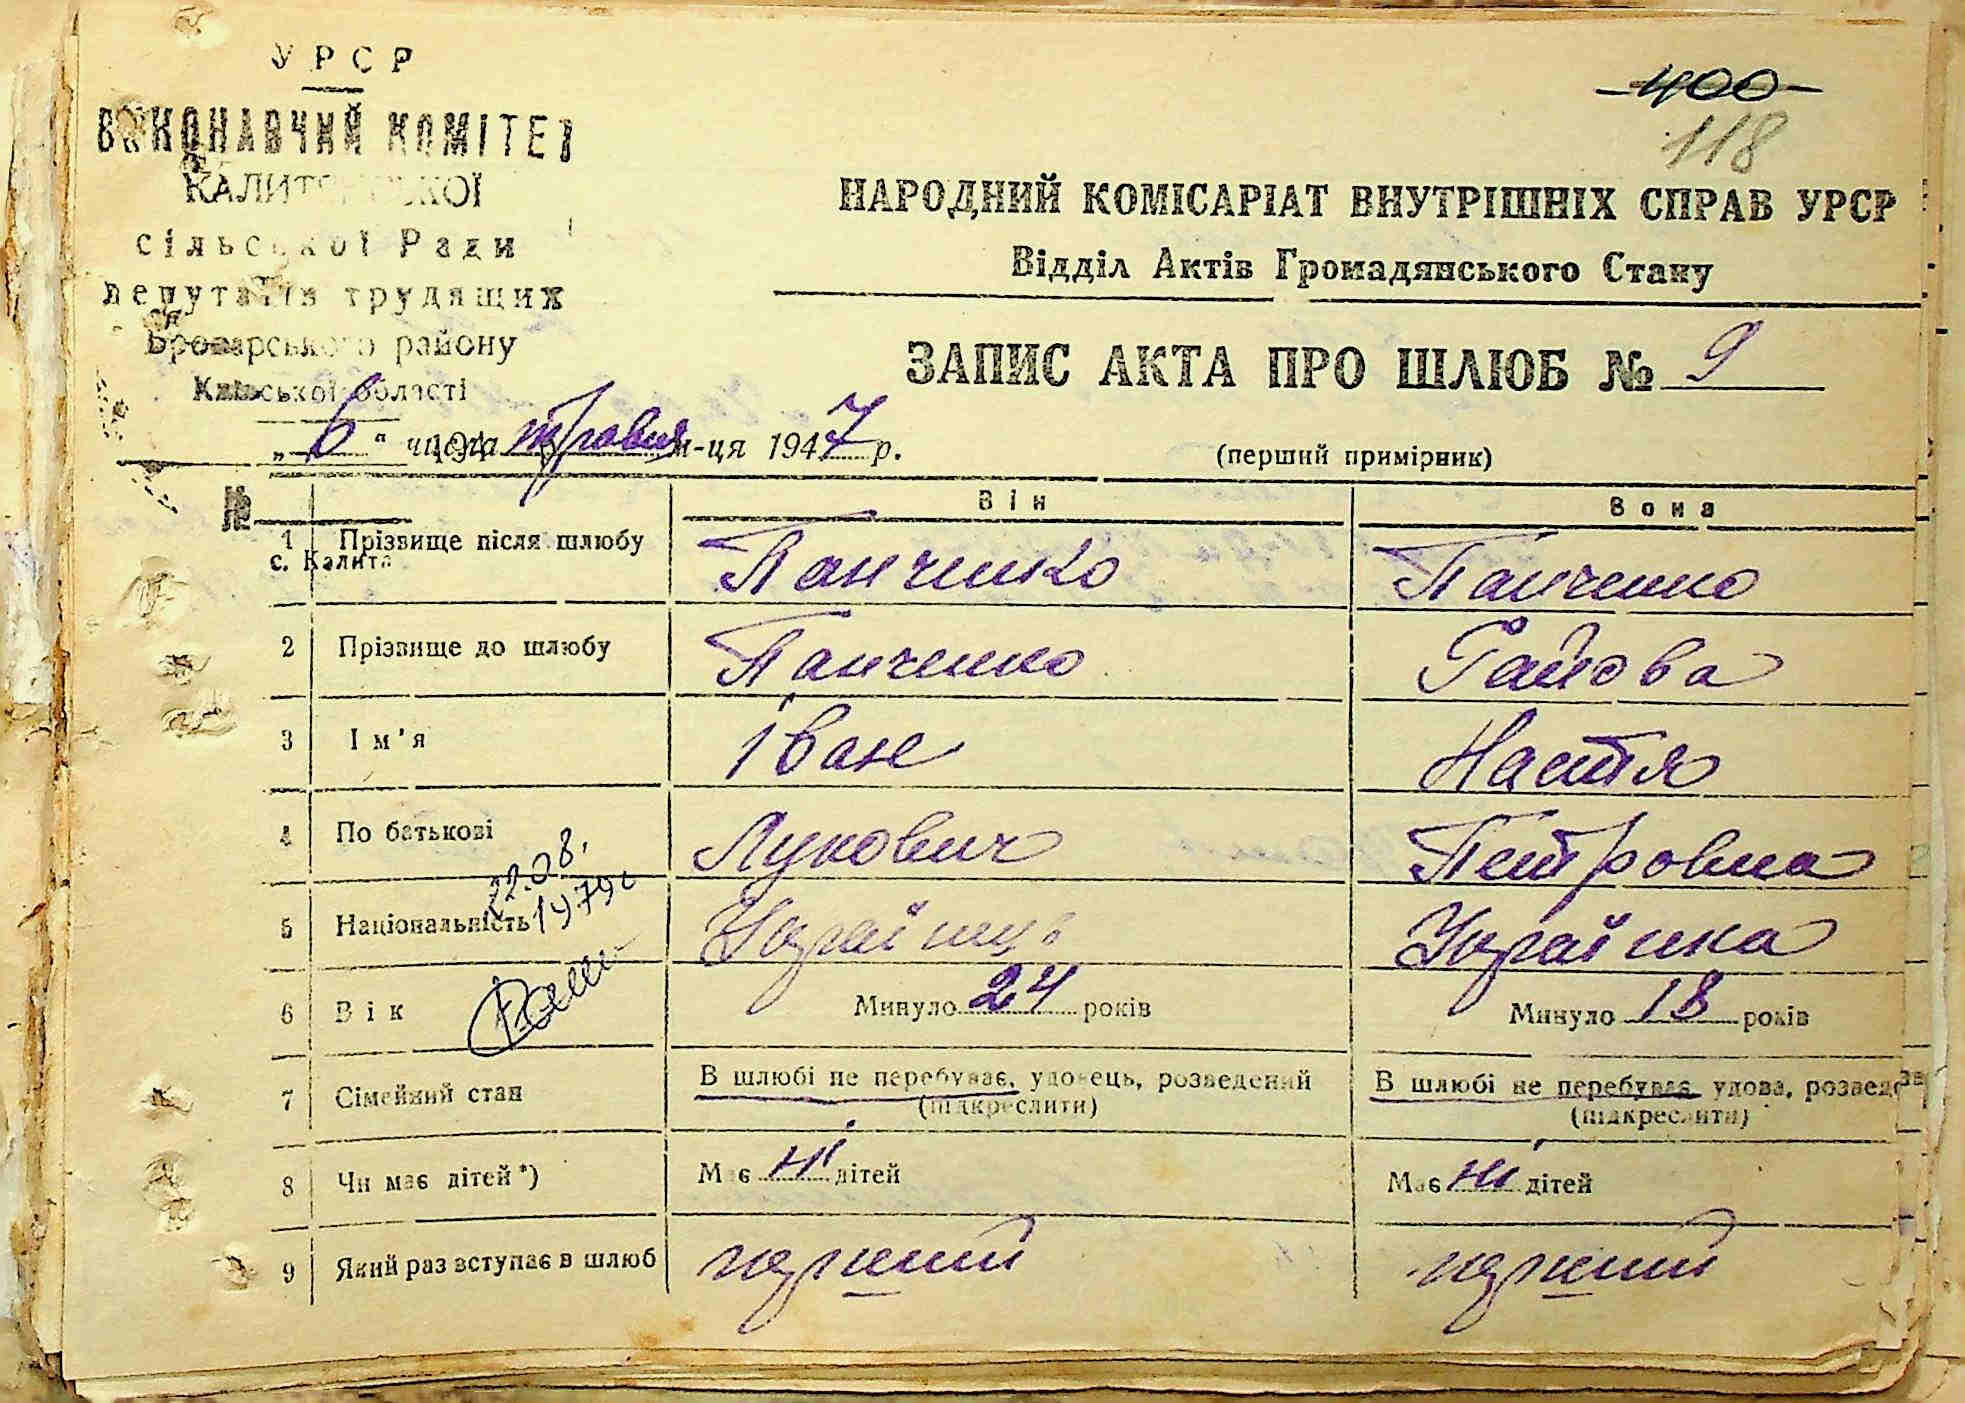 УРСР
ВИКОНАВЧИЙ КОМІТЕТ
КАЛИТЯНСЬКОЇ
сільської Ради
депутатів трудящих
Броварського району
Київської області
194
№
с. Калита
400
118
НАРОДНИЙ КОМІСАРІАТ ВНУТРІШНІХ СПРАВ УРСР
Відділ Актів Громадянського Стану
ЗАПИС АКТА ПРО ШЛЮБ № 9
„6" числа травня м-ця 1947 р.
(перший примірник)
Він Вона
1 Прізвище після шлюбу Панченко Панченко
2 Прізвище до шлюбу Панченко Гайова
3 Ім'я Іван Настя
4 По батькові Лукович Петровна
22.08.
1979
5 Національність Українць Українка
6 Вік Минуло 24 років Минуло 18 років
7 Сімейний стан В шлюбі не перебуває, удовець, розведений В шлюбі не перебуває, удова, розведе
(підкреслити) (підкреслити)
8 Чи має дітей*) Має ні дітей Має ні дітей
9 Який раз вступає в шлюб перший перший